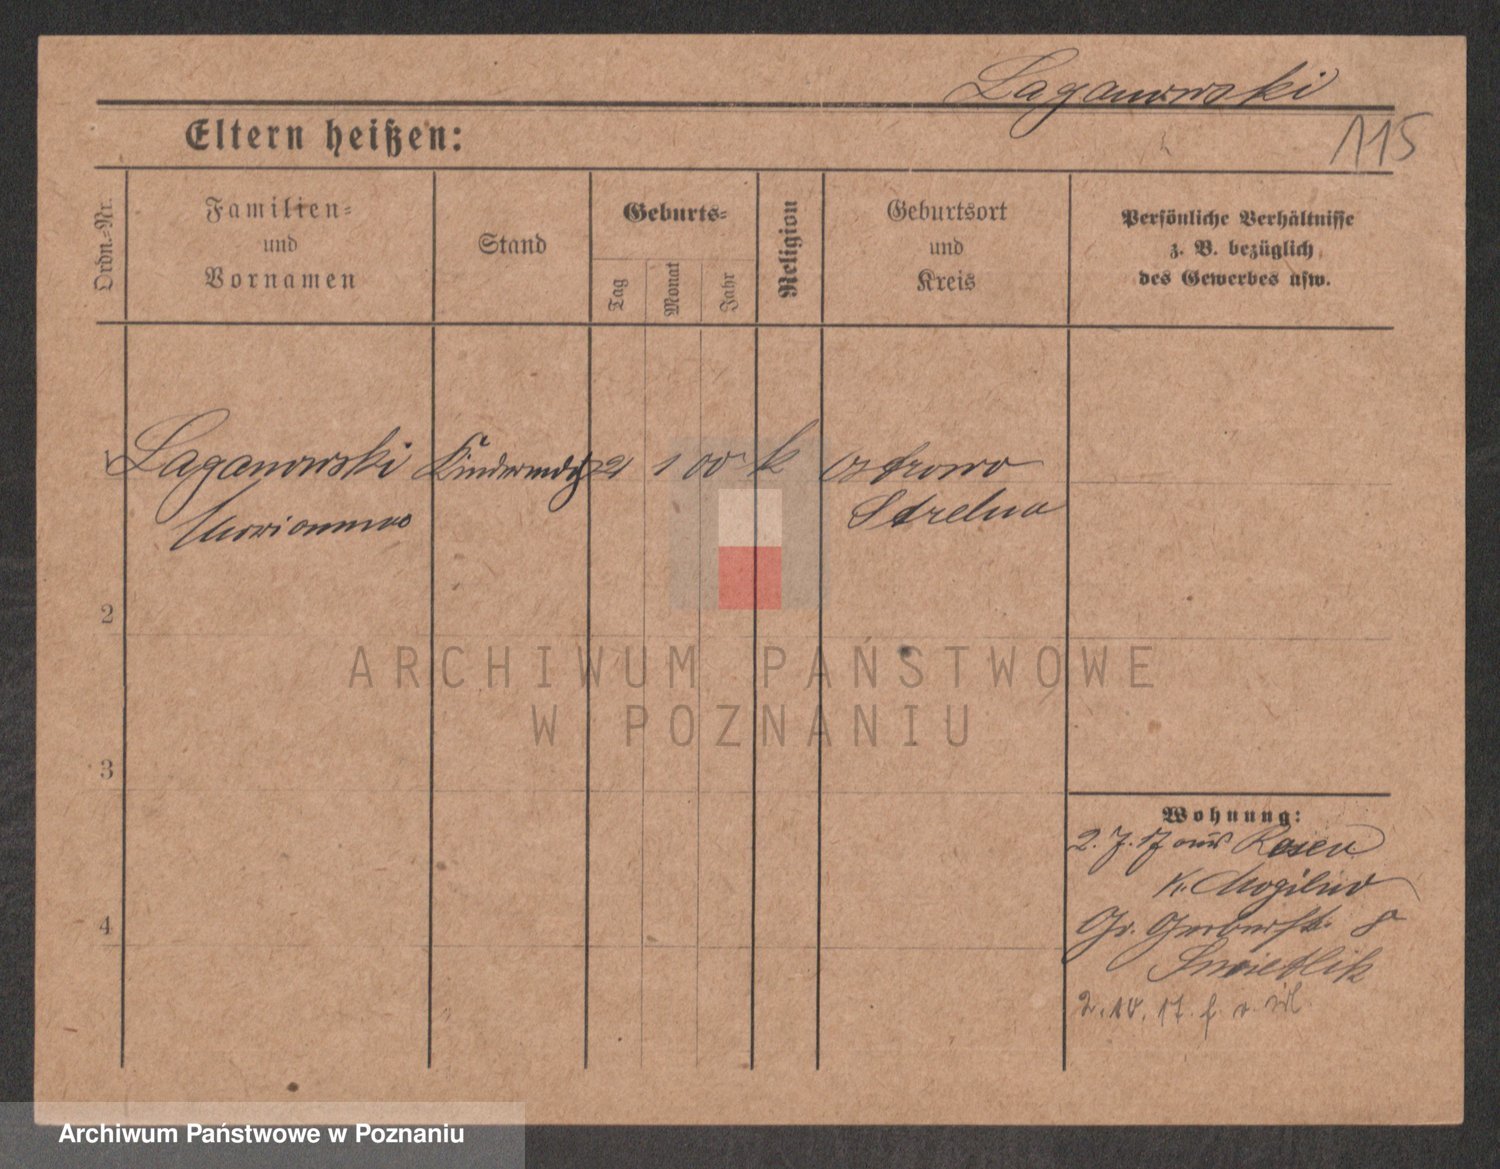 Laganowski
115
Eltern heißen:
Ordn.=Nr.
Familien=
und
Vornamen
Stand
Geburts=
Tag
Monat
Jahr
Religion
Geburtsort
und
Kreis
Persönliche Verhältnisse
z. B. bezüglich
des Gewerbes usw.
1 Laganowski 21 1 00 k Ostrowo
Marianna Strelno
2
3
4
Wohnung:
2. 7. 17 aus Rosen
K. Mogilno
Gr. Gerberst. 8
Swietlik
2. 10. 17.
ARCHIWUM PAŃSTWOWE
W POZNANIU
Archiwum Państwowe w Poznaniu